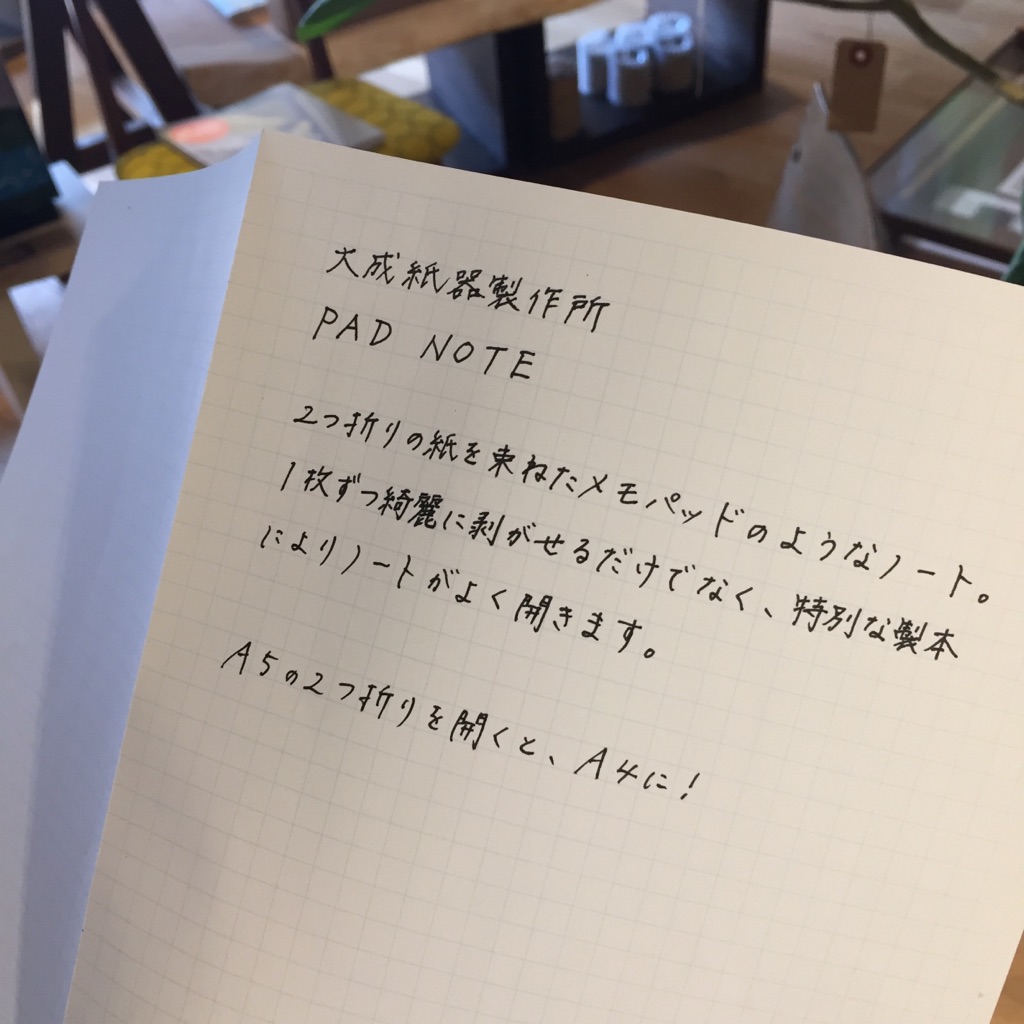 大成紙器製作所
PAD NOTE
2つ折りの紙を束ねたメモパッドのようなノート。
1枚ずつ綺麗に剥がせるだけでなく、特別な製本
によりノートがよく開きます。
A5の2つ折りを開くと、A4に!